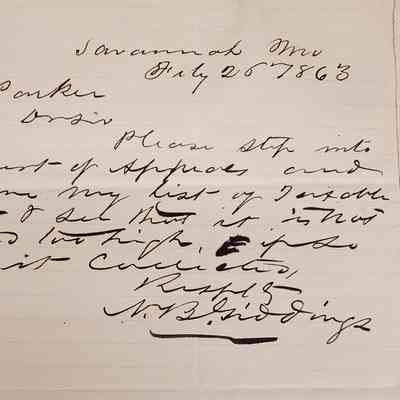 Savannah Mo
Feby 26th 1863
Parker
Dr Sir
Please step into
urt of Appeals and
me my list of Taxable
& see that it is not
too high, & if so
it Corrected,
Respfly
N. B. Giddings